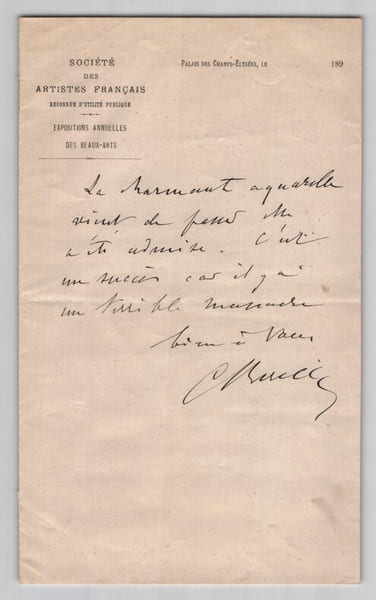 SOCIÉTÉ
DES
ARTISTES FRANÇAIS
RECONNUE D'UTILITÉ PUBLIQUE
EXPOSITIONS ANNUELLES
DES BEAUX-ARTS
PALAIS DES CHAMPS-ÉLYSÉES, LE 189
La charmant aquarelle
vient de passer elle
a été admise. C'est
un succès car il y a
un terrible massacre
bien à vous